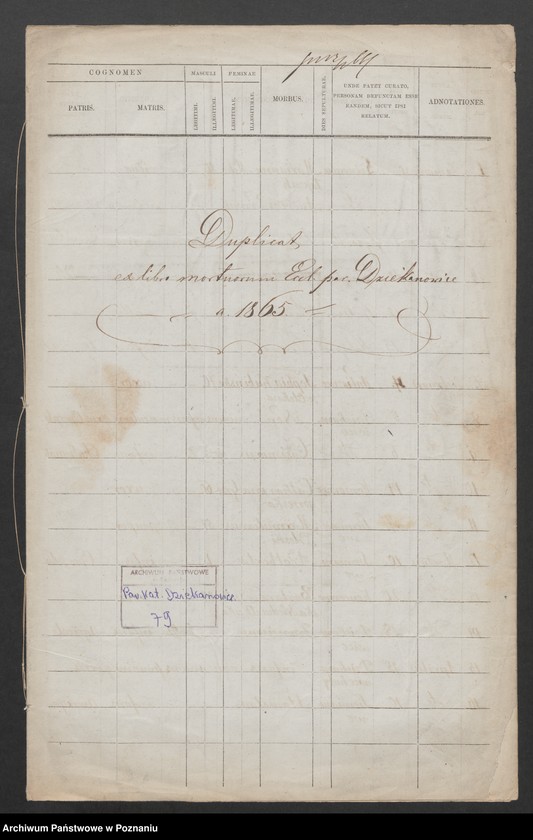 COGNOMEN
MASCULI
FEMINAE
MORBUS.
DIES SEPULTURAE.
UNDE PATET CURATO,
PERSONAM DEFUNCTAM ESSE
EANDEM, SICUT IPSI
RELATUM.
ADNOTATIONES.
PATRIS.
MATRIS.
LEGITIMI.
ILLEGITIMI.
LEGITIMAE.
ILLEGITIMAE.
Duplicat
ex libro mortuorum Eccl. par. Dziekanowice
a. 1865
ARCHIWUM PAŃSTWOWE
Par. Kat. Dziekanowice
79
Archiwum Państwowe w Poznaniu